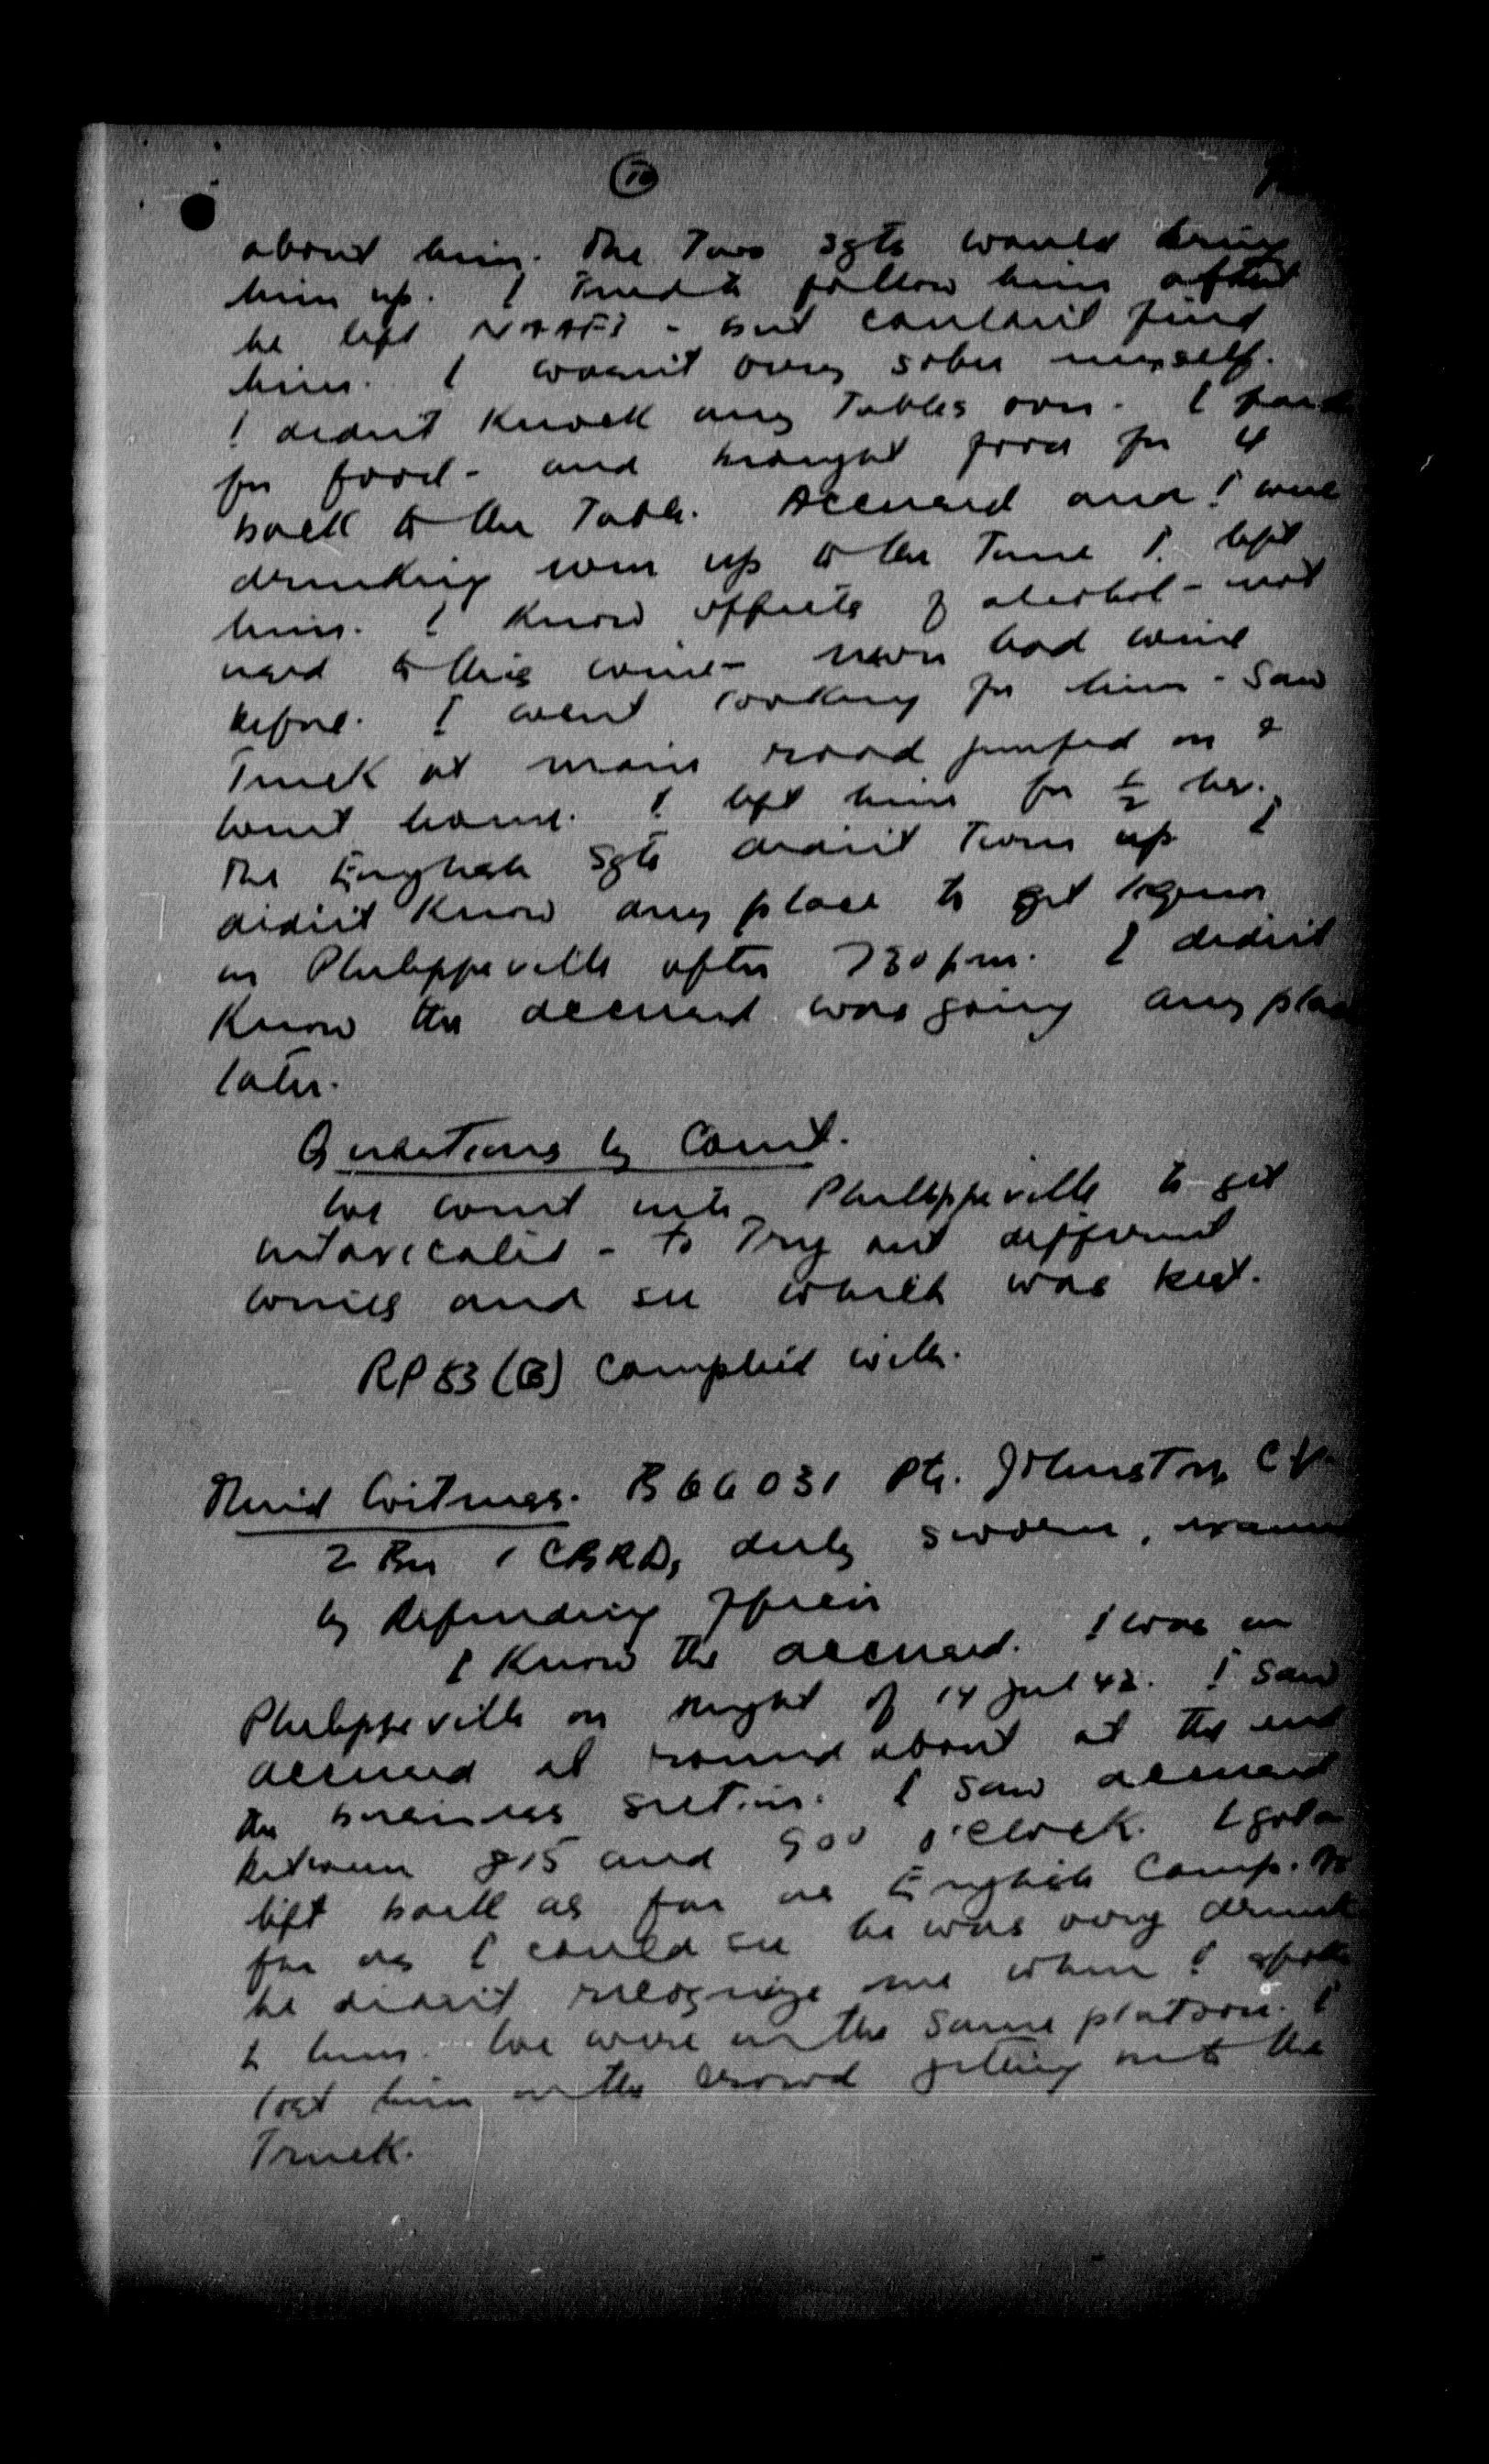 10
about him. The Two Sgts would bring
him up. I tried to follow him after
he left NAAFI - but couldn't find
him. I wasn't very sober myself.
I didn't knock any Tables over. I paid
for food - and brought food for 4
back to the Table. Accused and I were
drinking wine up to the Time I left
him. I know effects of alcohol - not
used to this wine - never had wine
before. I went looking for him - Saw
Truck at main road jumped on &
went home. I left him for ½ hr.
The English Sgts didn't Turn up I
didn't know any place to get liquor
in Philippeville after 730 p.m. I didn't
know the accused was going any place
later.
Questions by Court.
We went into Philippeville to get
intoxicated - to Try out different
wines and see which was best.
RP 83 (B) complied with.
Third Witness. B66031 Pte. Johnston C
2 Bn 1 CBRD, duly sworn, examined
by Defending Officer
I know the accused. I was in
Philippeville on night of 14 Jul 43. I saw
accused at roundabout at the end
the business section. I saw accused
between 815 and 900 o'clock. I got a
lift back as far as English Camp. As
far as I could see he was very drunk
he didn't recognize me when I spoke
to him. We were in the same platoon. I
lost him in the crowd getting into the
Truck.